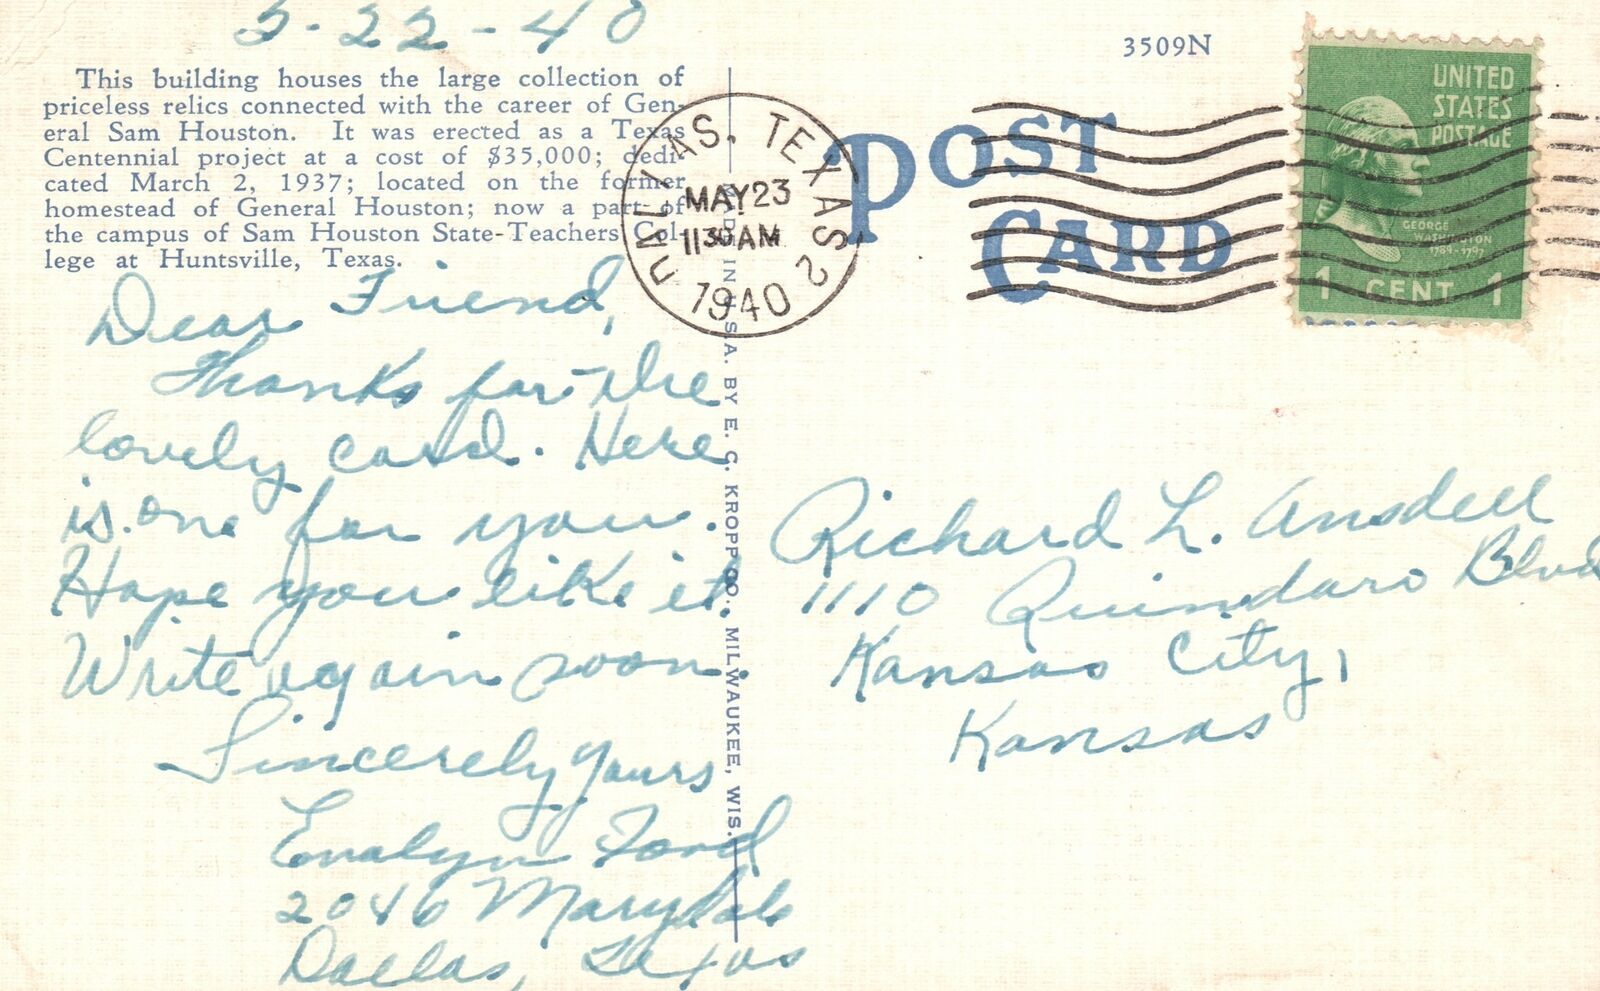 5-22-40
This building houses the large collection of
priceless relics connected with the career of Gen-
eral Sam Houston. It was erected as a Texas
Centennial project at a cost of $35,000; dedi-
cated March 2, 1937; located on the former
homestead of General Houston; now a part of
the campus of Sam Houston State-Teachers Col-
lege at Huntsville, Texas.
Dear Friend,
Thanks for the
lovely card. Here
is one for you.
Hope you like it.
Write again soon.
Sincerely yours
Evalyn Ford
2046 Marydale
Dallas, Texas
MADE IN U. S. A. BY E. C. KROPP CO., MILWAUKEE, WIS.
DALLAS, TEXAS 2
MAY 23
11 30 AM
1940
3509N
POST
CARD
UNITED
STATES
POSTAGE
GEORGE
WASHINGTON
1789-1797
1 CENT 1
Richard L. Ansdell
1110 Quindaro Blvd
Kansas City,
Kansas